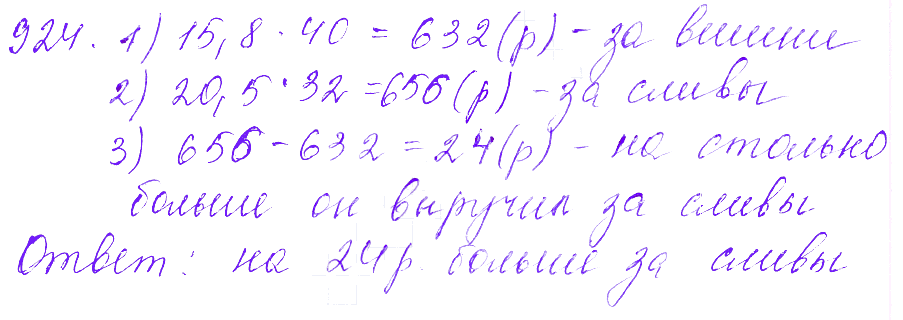 924. 1) 15,8 · 40 = 632 (р) - за вишни
2) 20,5 · 32 = 656 (р) - за сливы
3) 656 - 632 = 24 (р) - на столько
больше он выручил за сливы
Ответ: на 24 р. больше за сливы